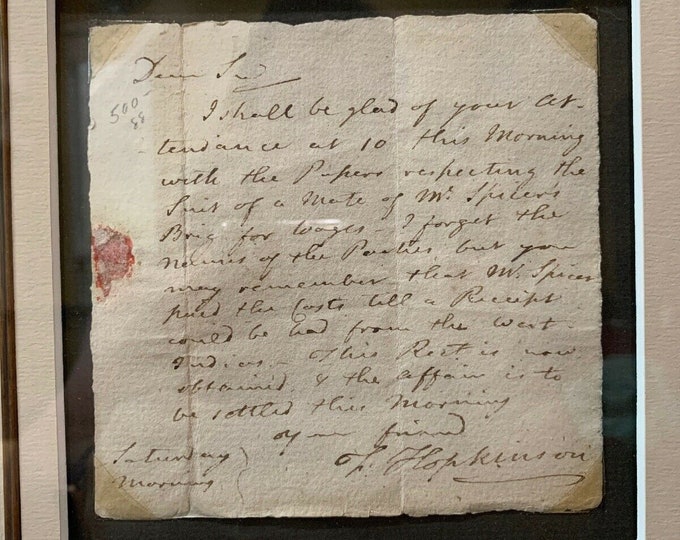 Dear Sir
500
88
I shall be glad of your At-
tendance at 10 this Morning
with the Papers respecting the
Suit of a Mate of Mr. Spicer's
Brig for Wages - I forget the
Names of the Parties but you
may remember that Mr. Spicer
paid the Costs till a Receipt
could be had from the West-
Indies - This Rect. is now
obtained & the affair is to
be settled this Morning
your friend
Saturday
Morning
F. Hopkinson